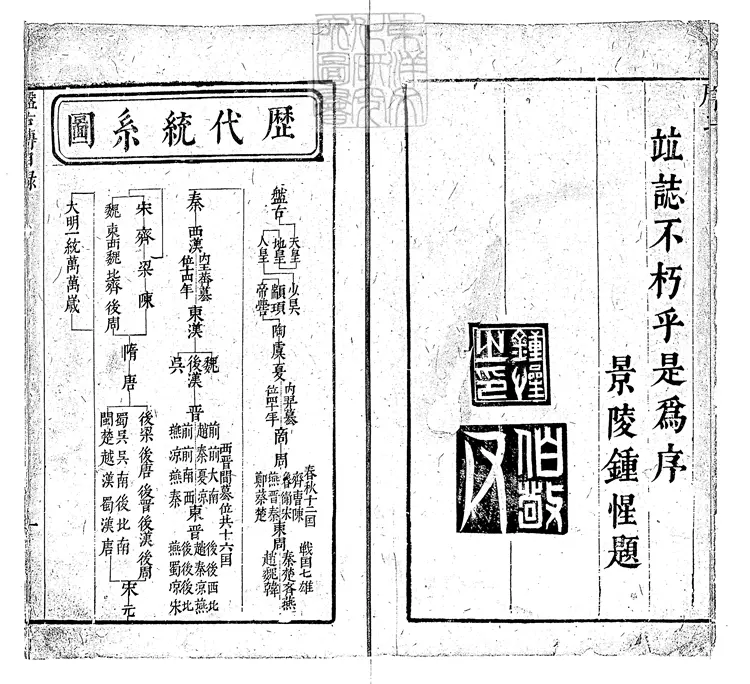 序
竝誌不朽乎是爲序
景陵鍾惺題
鍾惺之印
伯敬父
歷代統系圖
盤古 天皇 地皇 人皇 少昊 顓頊 帝嚳 陶虞夏 内羿篡位四十年 商周
春秋十二国
齊曹陳
魯衛宋
燕晉秦
鄭蔡楚
東周
戦国七雄
秦楚齐燕
趙魏韓
秦 西漢 内王莽篡位十四年 東漢 魏 後漢 吳 晉
西晉間篡位共十六国
前前大南
趙秦夏凉
前前南西
燕凉燕秦
東晉
後後西北
越秦凉燕
後後後北
燕蜀凉宋
宋齊梁陳
魏東西魏北齊後周
隋唐
後梁後唐後晉後漢後周
蜀吳吳南後北南
閩楚越漢蜀漢唐
宋元
大明一統萬萬歲
盤古傳目錄 一